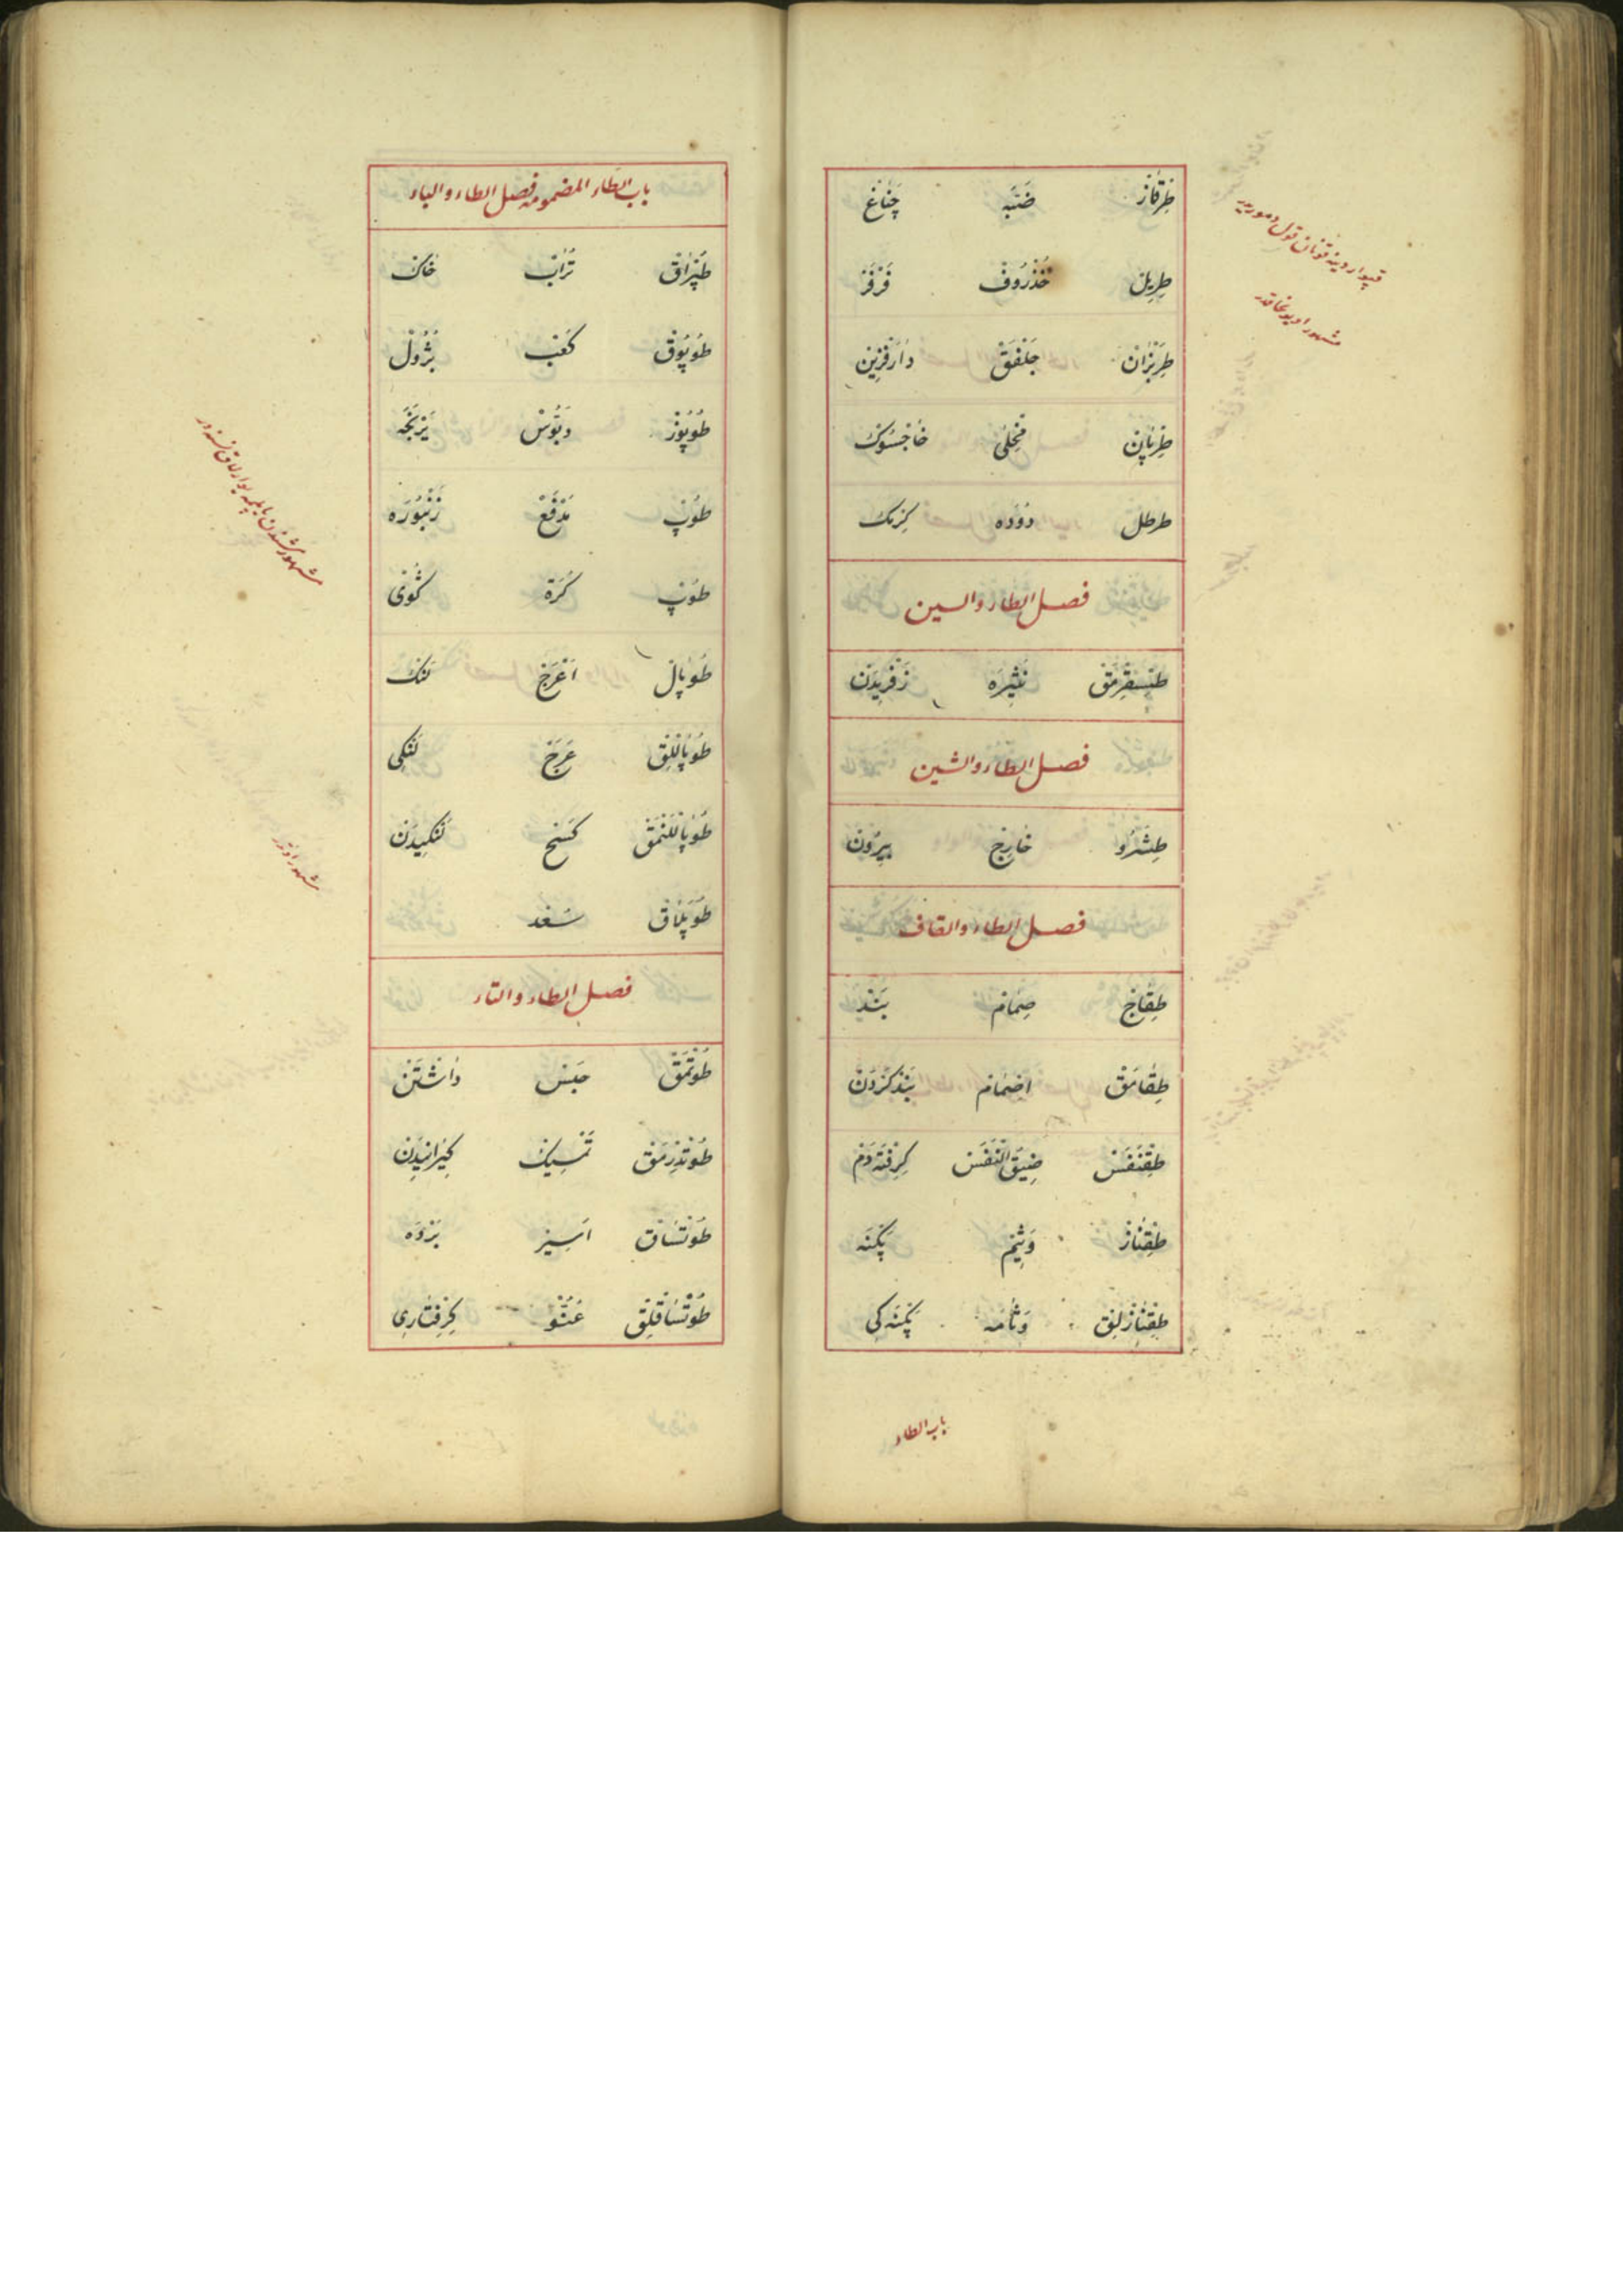 طِرْقَاز ضَبَّه چَنَاغ
طِرِيل خُذْرُوف فَرْفَر
طِرَبْزَان جَلْفَق دَارَفْزِين
طِرْپَان مِخْلَى
طرطل دُوَدَه كِزِنك
فصل الطاء والسين
طِسْقِرْمَق نَثِيرَه زَفْرِيدَن
فصل الطاء والشين
طِشَرُو خَارِج بِيرُون
فصل الطاء والقاف
طِقَاج صِمَام بَنْد
طِقَامَق اضمام بَنْدكَرْدَن
طِقْنَفَس ضِيقُ النَّفَس كِرِفْتَه دَم
طِقْنَاز وَثِيم پَكْنَه
طِقْنَازْلِق وَثَامَه پَكْنَه كِى
باب الطاء
باب الطاء المضمومه فصل الطاء والباء
طُپْرَاق تُرَاب خَاك
طُوپُوق كَعْب بُژُول
طُوپُوز دَبُّوس
طُوپ مِدْفَع زَنْبُورَه
طُوپ كُرَة گُوى
طُوپَال اَعْرَج لَنْك
طُوپَالْلِق عَرَج لَنْكِى
طُوپَالْلَنْمَق كَسْح لَنْكِيدَن
طُوپَلَاق سُعْد
فصل الطاء والتاء
طُوتْمَق حَبْس دَاشْتَن
طُوتْدُرْمَق تَمْسِيك كِيرَانِيدَن
طُوتْسَاق اَسِير بَرْدَه
طُوتْسَاقْلِق عُنُوّ كِرِفْتَارِى
مشهور اوتدر